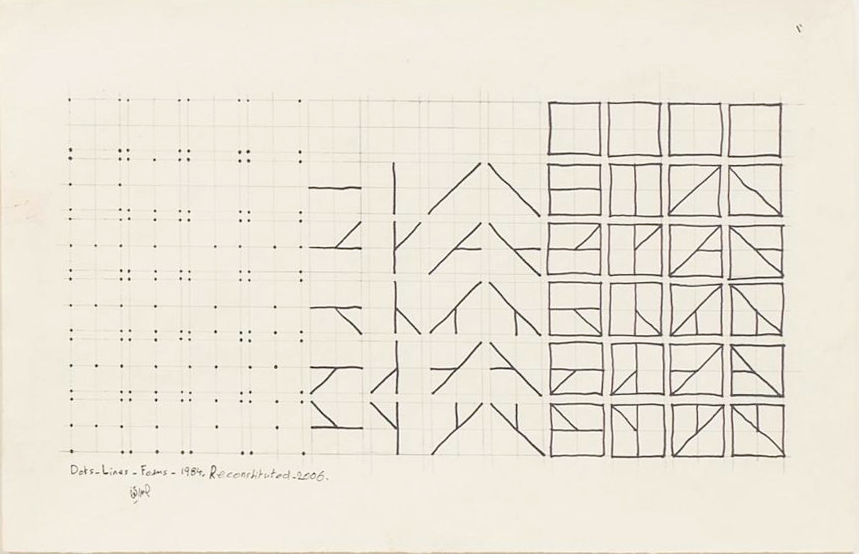 Dots-Lines-Forms-1984. Reconstituted-2006.